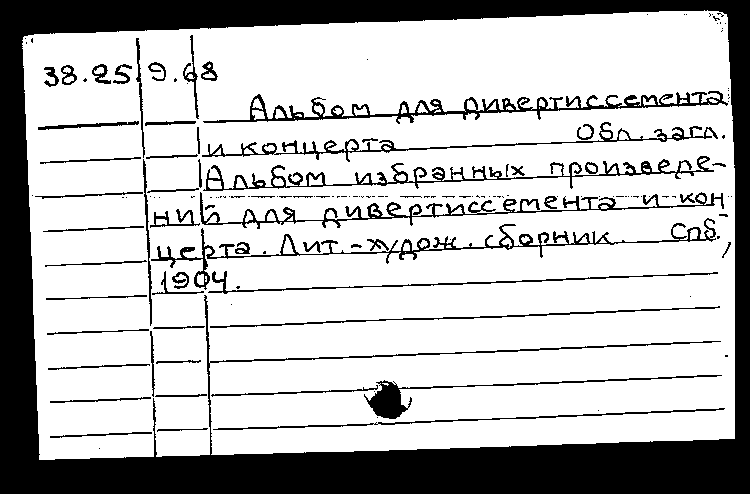 38.25.9.68
Альбом для дивертиссемента
и концерта Обл. загл.
Альбом избранных произведе-
ний для дивертиссемента и кон-
церта. Лит.-худож. сборник. Спб.,
1904.